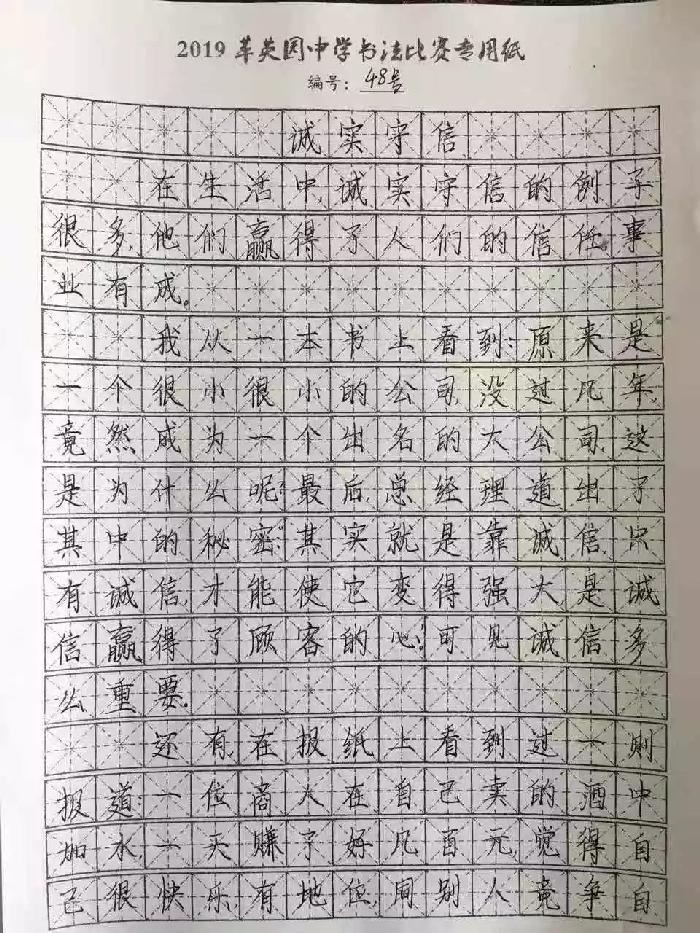 2019 革英园中学书法比赛专用纸
编号：48号
诚实守信
在生活中,诚实守信的例子
很多,他们赢得了人们的信任,事
业有成。
我从一本书上看到:原来是
一个很小很小的公司,没过几年,
竟然成为一个出名的大公司,这
是为什么呢?最后,总经理道出了
其中的秘密:"其实就是靠诚信,只
有诚信,才能使它变得强大,是诚
信赢得了顾客的心!"可见诚信多
么重要。
还有,在报纸上看到过一则
报道:一位商人在自己卖的酒中
加水,一天赚了好几百元,觉得自
己很快乐,有地位,同别人竞争自